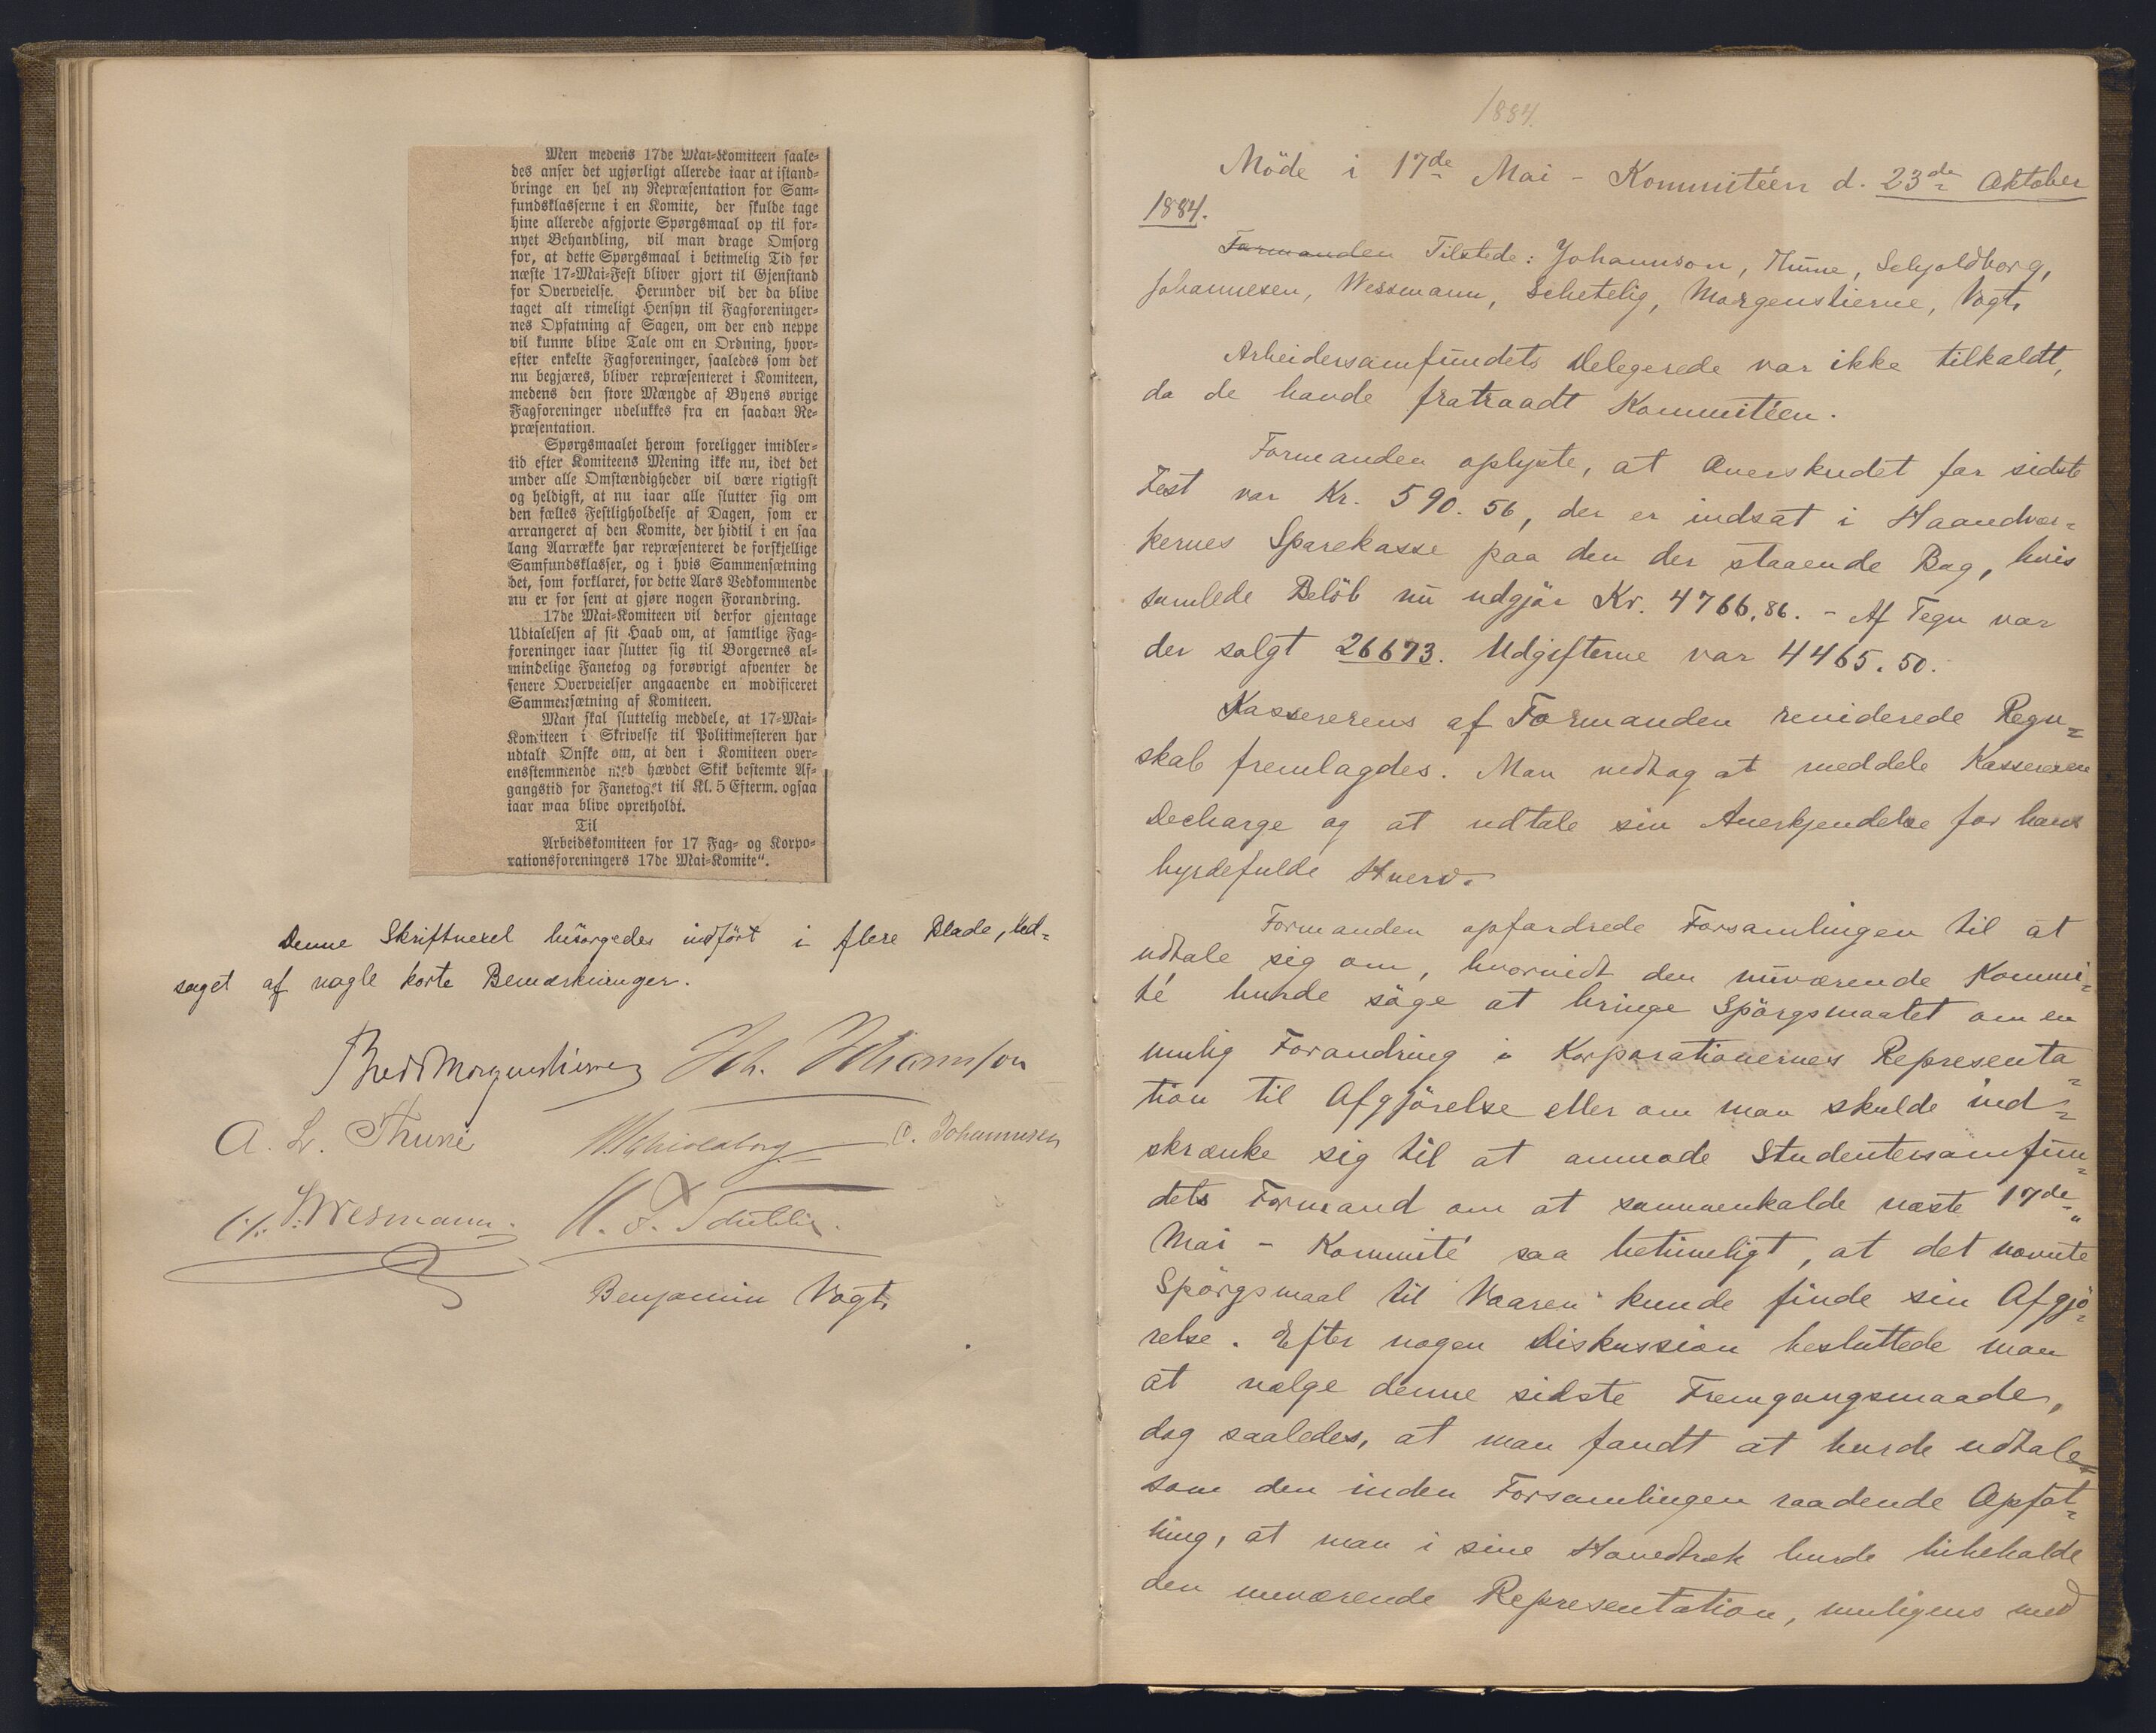 Men medens 17de Mai-Komiteen saale-
des anser det ugjørligt allerede iaar at istand-
bringe en hel ny Repræsentation for Sam-
fundsklasserne i en Komite, der skulde tage
hine allerede afgjorte Spørgsmaal op til for-
nyet Behandling, vil man drage Omsorg
for, at dette Spørgsmaal i betimelig Tid før
næste 17-Mai-Fest bliver gjort til Gjenstand
for Overveielse. Herunder vil der da blive
taget alt rimeligt Hensyn til Fagforeninger-
nes Opfatning af Sagen, om der end neppe
vil kunne blive Tale om en Ordning, hvor-
efter enkelte Fagforeninger, saaledes som det
nu begjæres, bliver repræsenteret i Komiteen,
medens den store Mængde af Byens øvrige
Fagforeninger udelukkes fra en saadan Re-
præsentation.
Spørgsmaalet herom foreligger imidler-
tid efter Komiteens Mening ikke nu, idet det
under alle Omstændigheder vil være rigtigst
og heldigst, at nu iaar alle slutter sig om
den fælles Festligholdelse af Dagen, som er
arrangeret af den Komite, der hidtil i en saa
lang Aarrække har repræsenteret de forskjellige
Samfundsklasser, og i hvis Sammensætning
det, som forklaret, for dette Aars Vedkommende
nu er for sent at gjøre nogen Forandring.
17de Mai-Komiteen vil derfor gjentage
Udtalelsen af sit Haab om, at samtlige Fag-
foreninger iaar slutter sig til Borgernes al-
mindelige Fanetog og forøvrigt afventer de
senere Overveielser angaaende en modificeret
Sammensætning af Komiteen.
Man skal sluttelig meddele, at 17-Mai-
Komiteen i Skrivelse til Politimesteren har
udtalt Ønske om, at den i Komiteen over-
ensstemmende med hævdet Skik bestemte Af-
gangstid for Fanetoget til Kl. 5 Efterm. ogsaa
iaar maa blive opretholdt.
Til
Arbeidskomiteen for 17 Fag- og Korpo-
rationsforeningers 17de Mai-Komite".
Denne Skriftvexel besørgedes indført i flere Blade, led-
saget af nogle korte Bemærkninger.
Bredo Morgenstierne Joh. Johannson
A. L. Thune H. Schjoldborg O. Johannesen
Wesmann. H. F. Schetelig.
Benjamin Vogt.
1884.
Möde i 17de Mai - Kommitéen d. 23de Oktober
1884.
Formanden Tilstede: Johannson, Thune, Schjoldborg,
Johannesen, Wessmann, Schetelig, Morgenstierne, Vogt.
Arbeidersamfundets Delegerede var ikke tilkaldt,
da de havde fratraadt Kommitéen.
Formanden oplyste, at Overskudet for sidste
Fest var Kr. 590.56, der er indsat i Haandvær-
kernes Sparekasse paa den der staaende Bog, hvis
samlede Belöb nu udgjör Kr. 4766,86. - Af Tegn var
der solgt 26673. Udgifterne var 4465.50.
Kassererens af Formanden reviderede Regn-
skab fremlagdes. Man vedtog at meddele Kassereren
Decharge og at udtale sin Anerkjendelse for hans
byrdefulde Hverv.
Formanden opfordrede Forsamlingen til at
udtale sig om, hvorvidt den nuværende Kommi-
té burde söge at bringe Spörgsmaalet om en
mulig Forandring i Korporationernes Representa-
tion til Afgjörelse eller om man skulde ind-
skrænke sig til at anmode Studentersamfun-
dets Formand om at sammenkalde næste 17de
Mai - Kommité saa betimeligt, at det nævnte
Spörgsmaal til Vaaren kunde finde sin Afgjö-
relse. Efter nogen Diskussion besluttede man
at vælge denne sidste Fremgangsmaade,
dog saaledes, at man fandt at burde udtale
som den inden Forsamlingen raadende Opfat-
ning, at man i sine Hovedtræk burde bibeholde
den nuværende Representation, muligens med